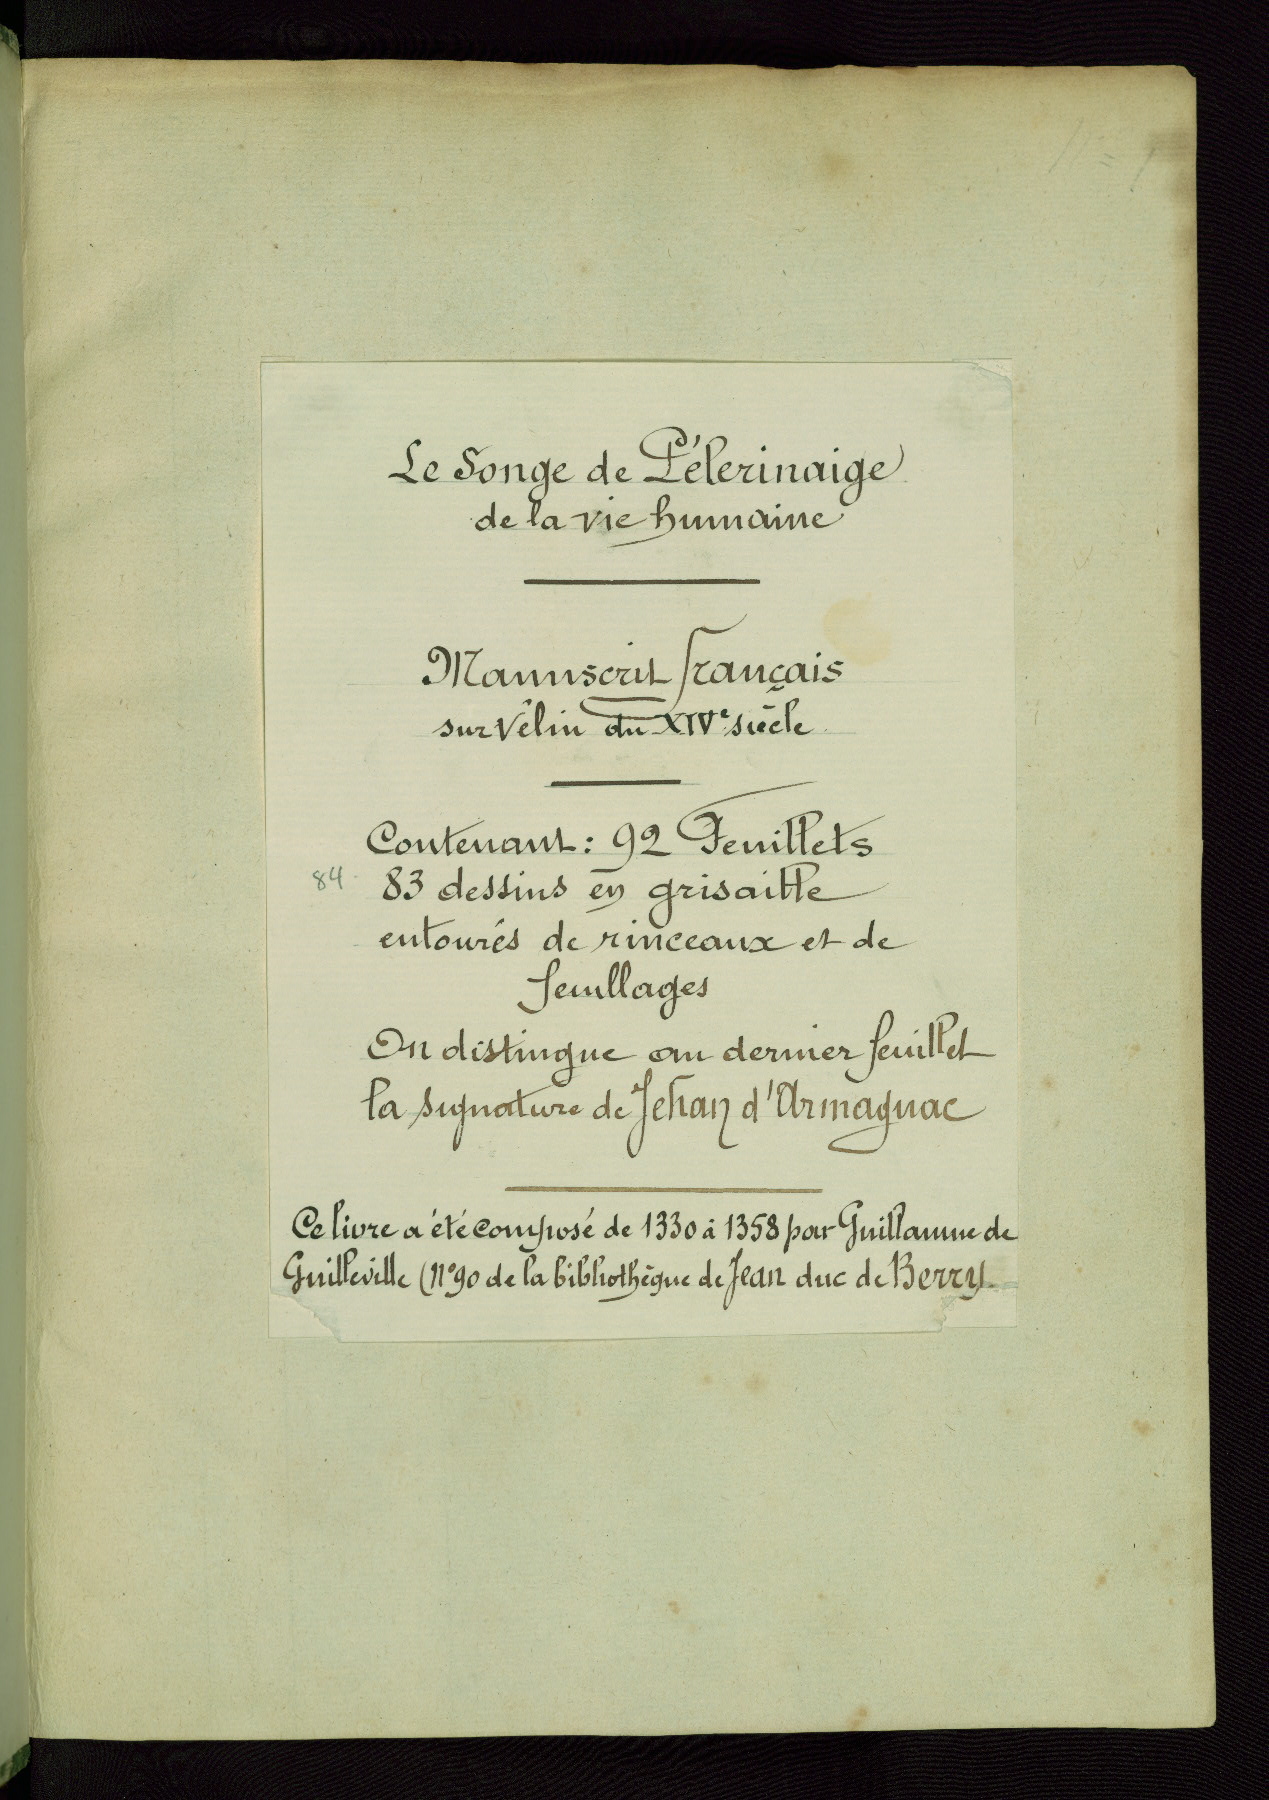 Le Songe de Pélerinaige
de la vie humaine
Manuscrit français
sur Vélin du XIVe siècle
Contenant : 92 Feuillets
84 83 dessins en grisaille
entourés de rinceaux et de
feuillages
On distingue au dernier feuillet
la signature de Jehan d'Armagnac
Ce livre a été composé de 1330 à 1358 par Guillaume de
Guilleville (N° 90 de la bibliothèque de Jean duc de Berry